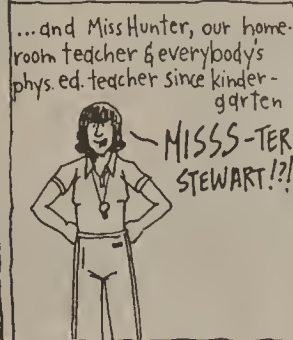 ...and Miss Hunter, our home-
room teacher & everybody's
phys. ed. teacher since kinder-
garten
MISSS-TER
STEWART!?!